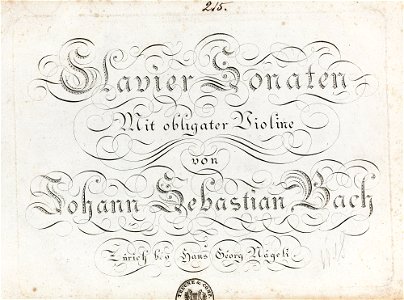 215.
Clavier Sonaten
Mit obligater Violine
von
Johann Sebastian Bach
Zürich b. Hans Georg Nägeli.